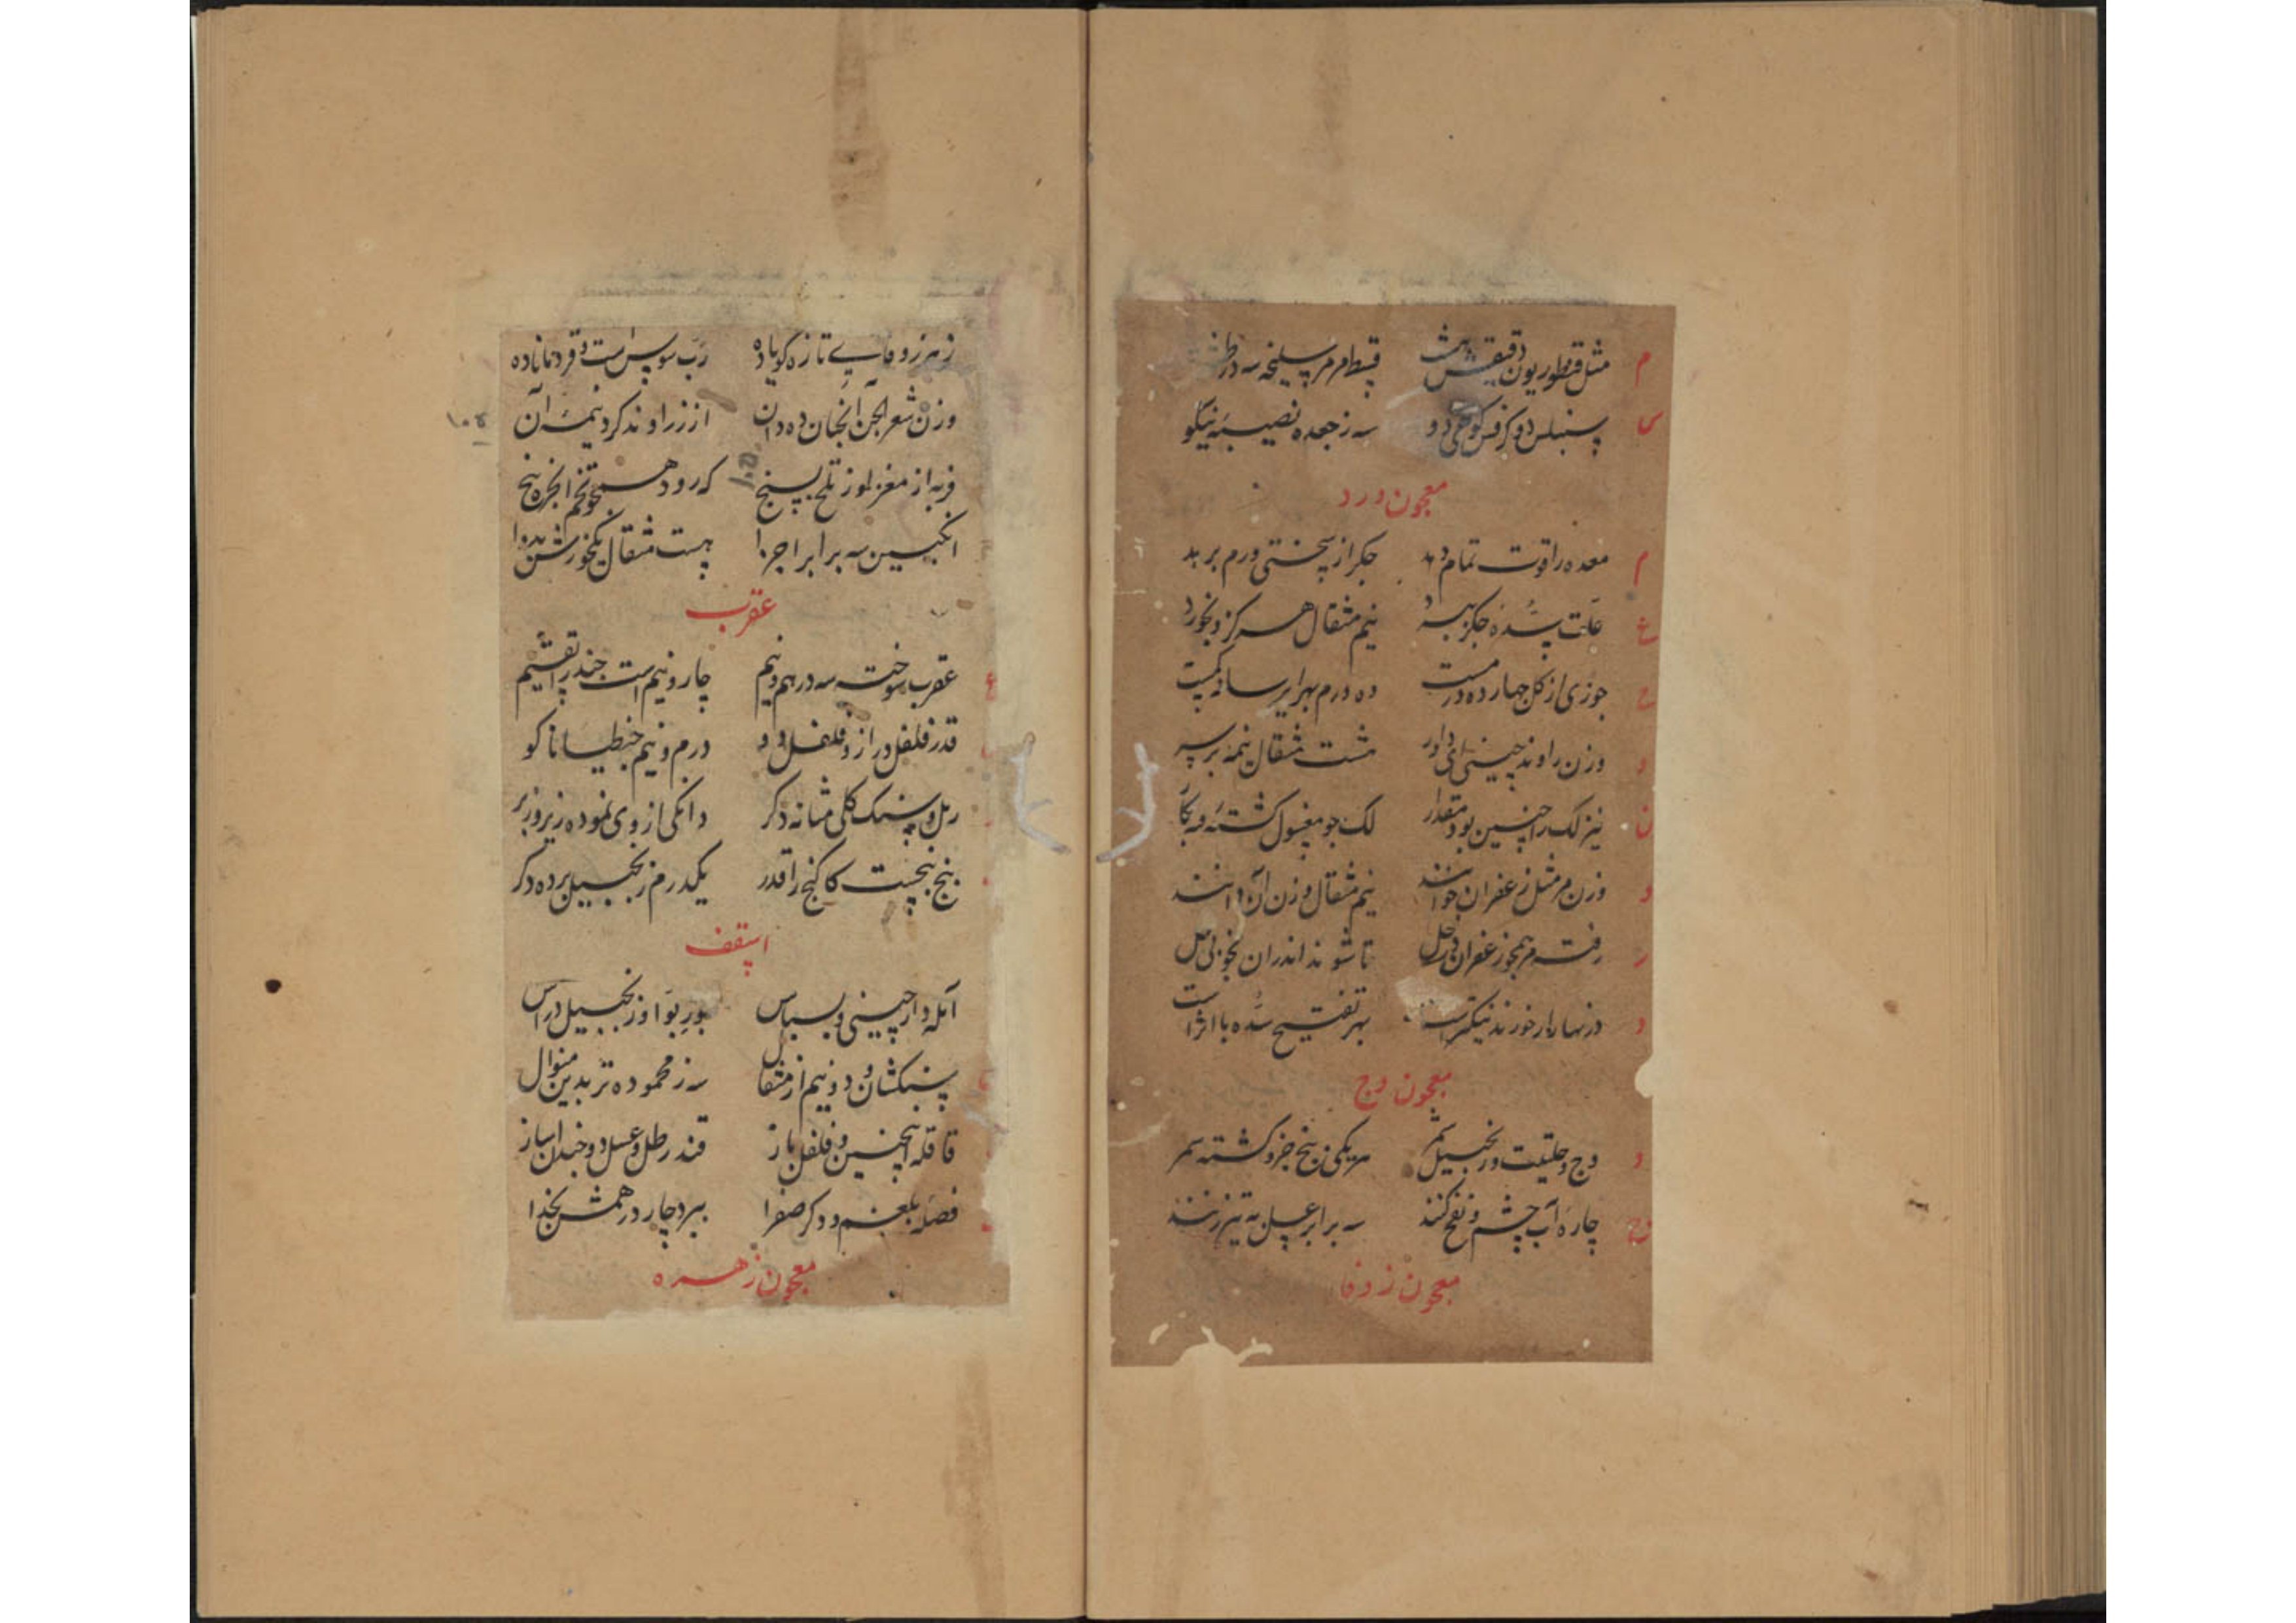 م مثل قنطوریون دقیقش هشت قسط و مر سلیخه سه درم
س سنبلس دو کرفس کوهی دو سه ز جعده نصیبه نیکو
معجون ورد
م معده را قوت تمام دهد جکر از سختی ورم برهد
ع علت سده جکر ببرد نیم مثقال هر کزو بخورد
ج جوزی از کل چهارده درمست ده درم بهر ایرسا نه کمست
و وزن راوند چینی ای داور هشت مثقال نیمه برسر
ن نیز لک را چنین بود مقدار لک جو مغسول کشته به بکار
و وزن مر مثل زعفران خوانند نیم مثقال وزن آن دانند
ر رفته مر همجو زعفران در خل تا شوند اندران بخوبی حل
د در نهار ار خورند نیکتر است بهر تفتیح سده با اثر است
معجون وج
و وج و حلتیت و زنجبیل شمر هر یکی ز پنج جزو کشته سمر
ج چاره آب چشم و نفخ کنند سه برابر عسل به تیز زنند
معجون زوفا
زهر زوفای تازه کویا ده رب سوس است و قردمانا ده
وزن شعر الجن انجبان ده دان از زراوند کرد نیمه آن
۱۰۴
فربه از مغز لوز تلخ پسنج که رود همجو تخم انجره پنج
۱۰۵
انکبین سه برابر اجزا هست مثقال یکخورش بدوا
عقرب
ع عقرب سوخته سه درهم و نیم چار و نیم است جند را تقسیم
قدر فلفل دراز و فلفل دو درم و نیم جنطیانا کو
رمل و سنک کلی مثانه دکر دانکی از وی نموده زیر و زبر
پنج بنجست کاکنج را قدر یکدرم زنجبیل برده دکر
اسقف
آمله دارچینی و بسباس جوز بوا و زنجبیل دراس
سنکشان دو و نیم از مثقال سه ز محموده تربد بدین منوال
قاقله اینچنین و فلفل باز قند رطل و عسل دو چندان ساز
فضله بلغم و دکر صفرا ببرد چار درهمش بخذا
معجون زهره